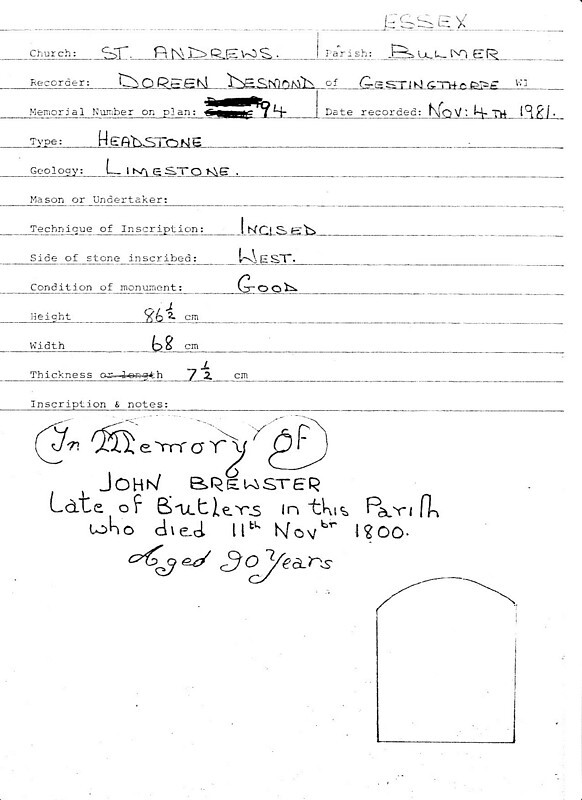 ESSEX
Church: ST. ANDREWS. Parish: BULMER
Recorder: DOREEN DESMOND of GESTINGTHORPE WI
Memorial Number on plan: 94 Date recorded: NOV: 4TH 1981.
Type: HEADSTONE
Geology: LIMESTONE.
Mason or Undertaker:
Technique of Inscription: INCISED
Side of stone inscribed: WEST.
Condition of monument: GOOD
Height 86½ cm
Width 68 cm
Thickness or length 7½ cm
Inscription & notes:
In Memory Of
JOHN BREWSTER
Late of Butlers in this Pariſh
who died 11th Novbr 1800.
Aged 90 Years